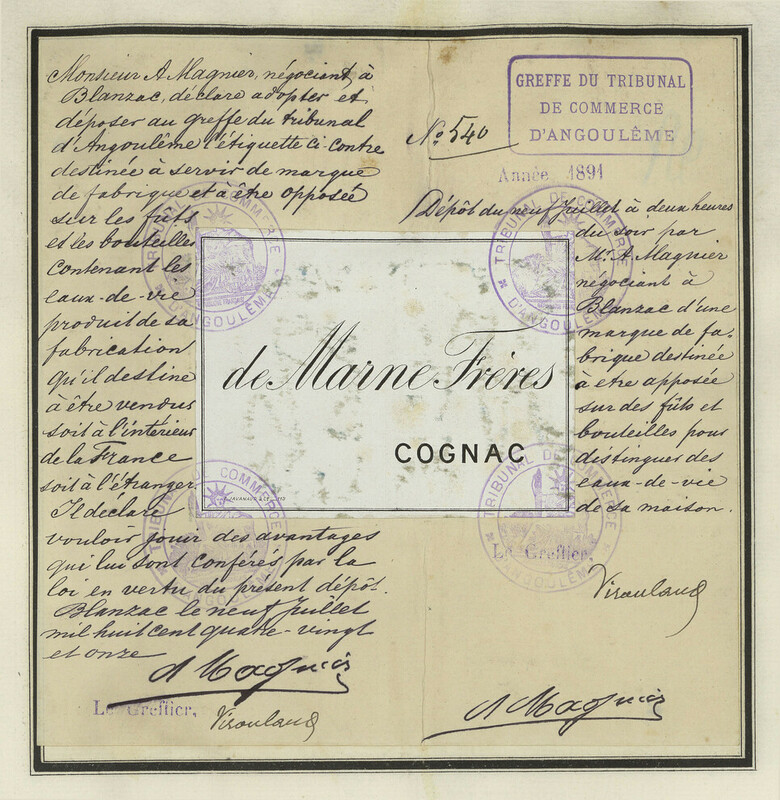 Monsieur A Magnier, négociant, à
Blanzac, déclare adopter et
déposer au greffe du tribunal
d'Angoulême l'étiquette ci-contre
destinée à servir de marque
de fabrique et à être opposée
sur les fûts
et les bouteilles
contenant les
eaux-de-vie
produit de sa
fabrication
qu'il destine
à être vendus
soit à l'intérieur
de la France
soit à l'étranger
Il déclare
vouloir jouir des avantages
qui lui sont conférés par la
loi en vertu du présent dépôt.
Blanzac le neuf Juillet
mil huit cent quatre-vingt
et onze
A Magnier
Le Greffier,
GREFFE DU TRIBUNAL
DE COMMERCE
D'ANGOULÊME
No 540
Année 1891
Dépôt du neuf Juillet à deux heures
du soir par
Mr A. Magnier
négociant à
Blanzac d'une
marque de fa-
brique destinée
à être apposée
sur des fûts et
bouteilles pour
distinguer des
eaux-de-vie
de sa maison.
Le Greffier,
A Magnier
de Marne Frères
COGNAC
TRIBUNAL DE COMMERCE
D'ANGOULÊME
TRIBUNAL DE COMMERCE
D'ANGOULÊME
TRIBUNAL DE COMMERCE
D'ANGOULÊME
TRIBUNAL DE COMMERCE
D'ANGOULÊME